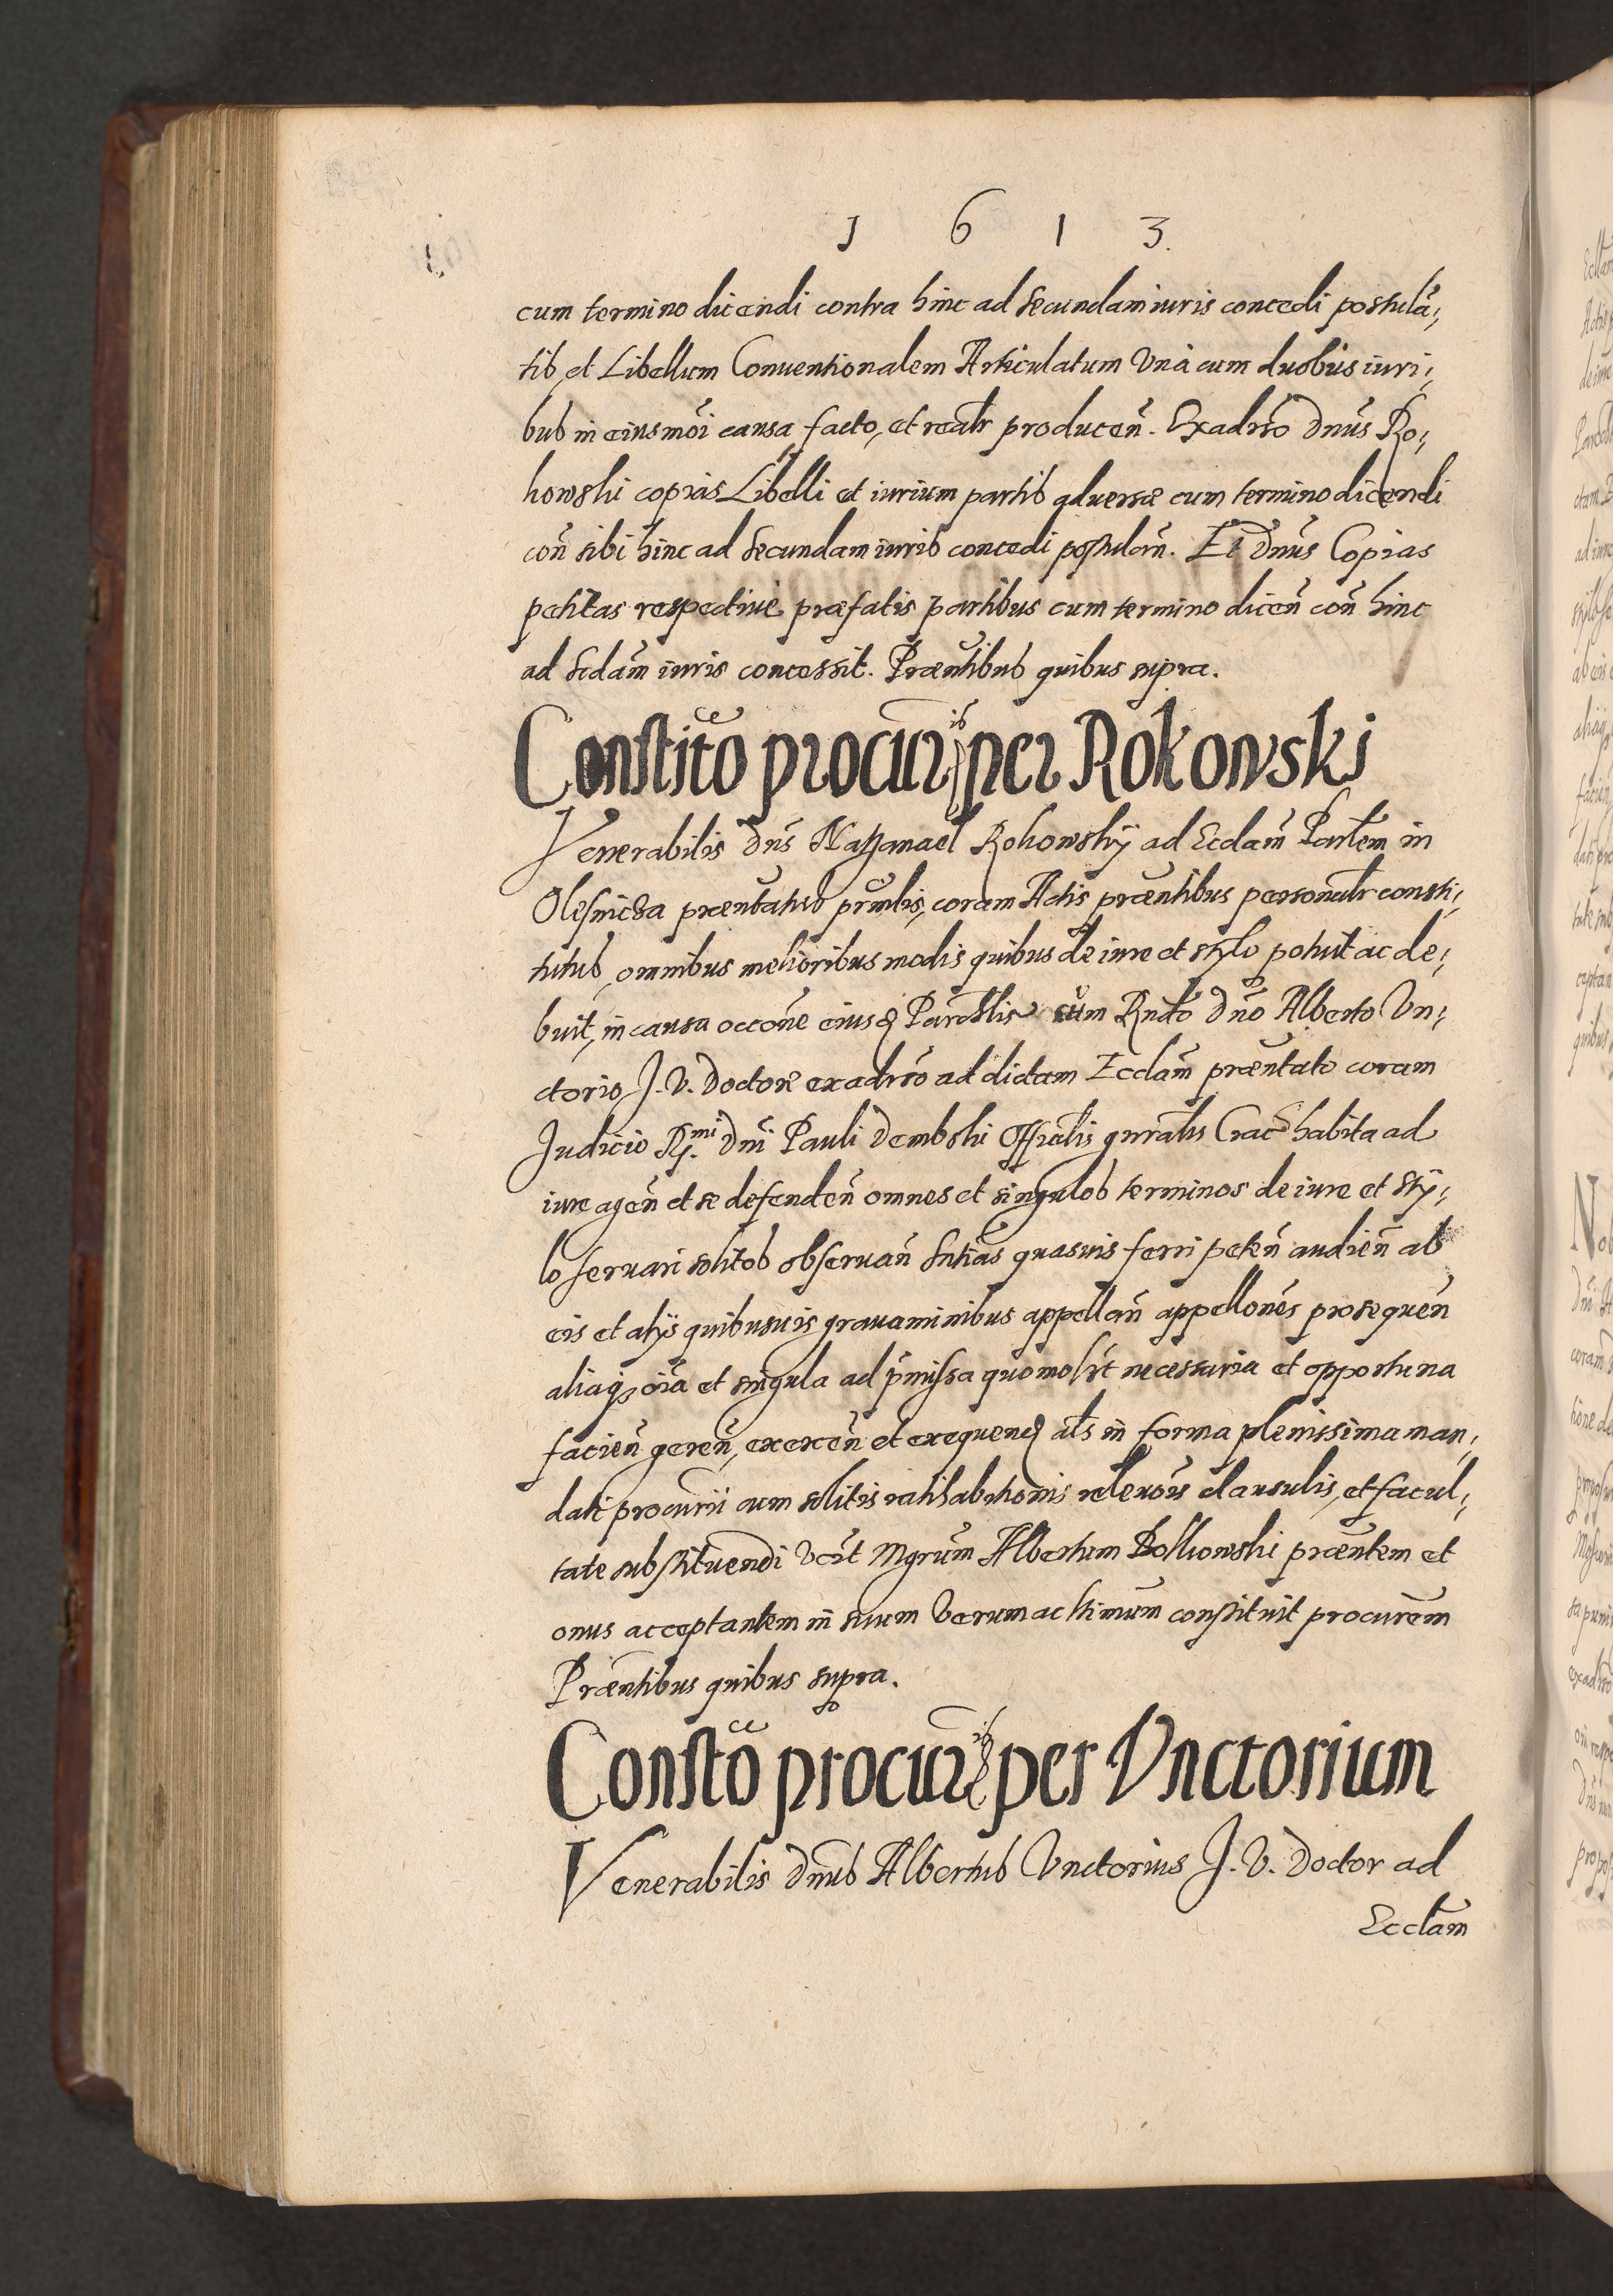 1 6 1 3.
cum termino dicendi contra hinc ad secundam iuris concedi postulã;
tis, et Libellum Conuentionalem Articulatum Vnà cum duobus iuri;
bus in eiusmõi causa facto, et realr producen̄. Exadrso Dnūs Ro;
kowski copias Libelli et iurium partis aduersæ cum termino dicendi
con̄ sibi hinc ad secundam iuris concedi postulan̄. Et Dnūs Copias
petitas respectiuè præfatis partibus cum termino dicen̄ con̄ hinc
ad scdam̄ iuris concessit. Præntibus quibus supra.
Constitõ procuris per Rokowski
Venerabilis Dns̄ Nathanael Rokowskÿ ad Ecclam̄ Parlem̄ in
Olesnicza præntatus prmlis, coram Actis præntibus personalr consti;
tutus, omnibus melioribus modis quibus de iure et stylo potuit ac de;
buit, in causa occõne eiusd Parochlis cum Rndo Dnō Alberto Vn;
ctorio J. V. Doctore exadrso ad dictam Ecclam̄ præntato coram
Judicio R.mi Dni Pauli Dembski Offialis gnralis Crac habita ad
iure agen̄ et se defenden̄ omnes et singulos terminos de iure et stÿ;
lo seruari solitos obseruan̄ sntias quasuis ferri peten̄ audien̄ ab
eis et alÿs quibusuis grauaminibus appellan̄ appellones prosequen̄
aliaq oia et singula ad p̄missa quomolt necessaria et opportuna
facien̄ geren̄, exercen̄ et exequend als in forma plenissima man;
dati procurii cum solitis ratihabitionis releuõis clausulis, et facul;
tate substituendi Vcit Mgrum̄ Albertum Bolkowski præntem et
onus acceptantem in suum Verum ac ltimum̄ constituit procurem̄
Præntibus quibus supra.
Constõ procuris per Vnctorium
Venerabilis Dnūs Albertus Vnctorius J. V. Doctor ad
Ecclam̄